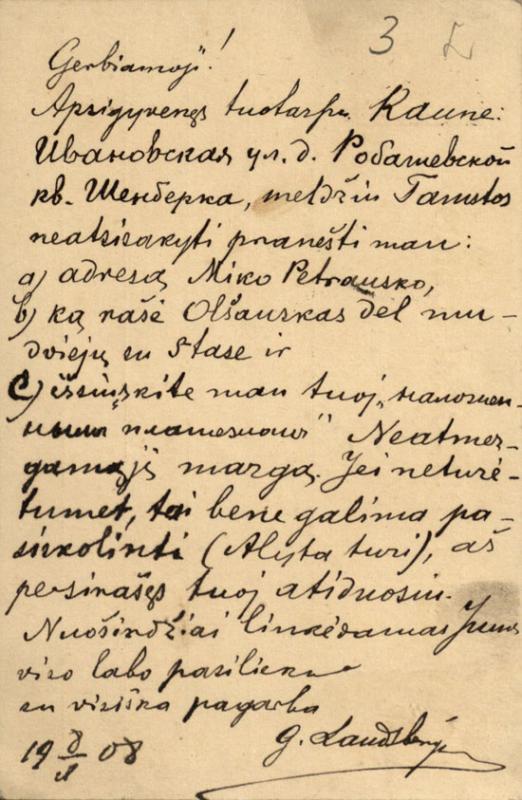 3
Gerbiamoji!
Apsigyvenęs tuotarpu Kaune:
Ивановская ул. д. Робашевской
кв. Шенберка, meldžiu Tamstos
neatsisakyti pranešti man:
a) adresą Miko Petrausko,
b) ką rašė Olšauskas dėl mu-
dviejų su Stase ir
c) išsiųskite man tuoj „наложен-
ным платежомъ" Neatmez-
gamąjį margą. Jei neturė-
tumet, tai bene galima pa-
siskolinti (Alyta turi), aš
persirašęs tuoj atiduosiu.
Nuoširdžiai linkėdamas Jums
viso labo pasilieku
su visiška pagarba
19 08
G. Landsbergis